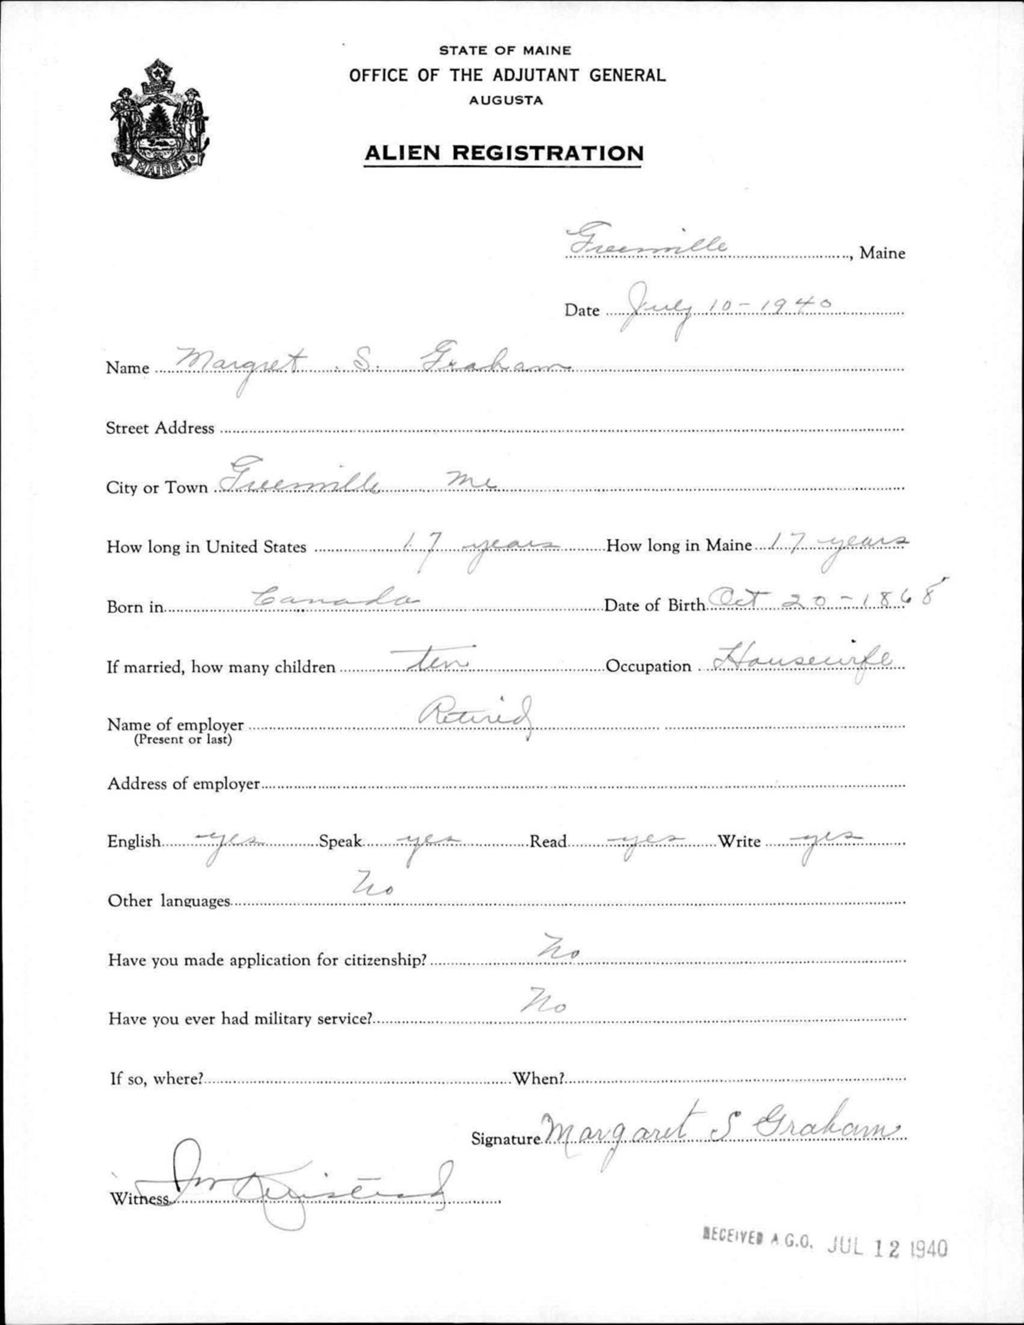 STATE OF MAINE
OFFICE OF THE ADJUTANT GENERAL
AUGUSTA
ALIEN REGISTRATION
MAINE
Greenville, Maine
Date July 10-1940
Name Margret S. Graham
Street Address
City or Town Greenville Me
How long in United States 17 years How long in Maine 17 years
Born in Canada Date of Birth Oct 20-1868
If married, how many children ten Occupation Housewife
Name of employer Retired
(Present or last)
Address of employer
English yes Speak yes Read yes Write yes
Other languages No
Have you made application for citizenship? No
Have you ever had military service? No
If so, where? When?
Signature Margaret S Graham
Witness
RECEIVED A.G.O. JUL 12 1940